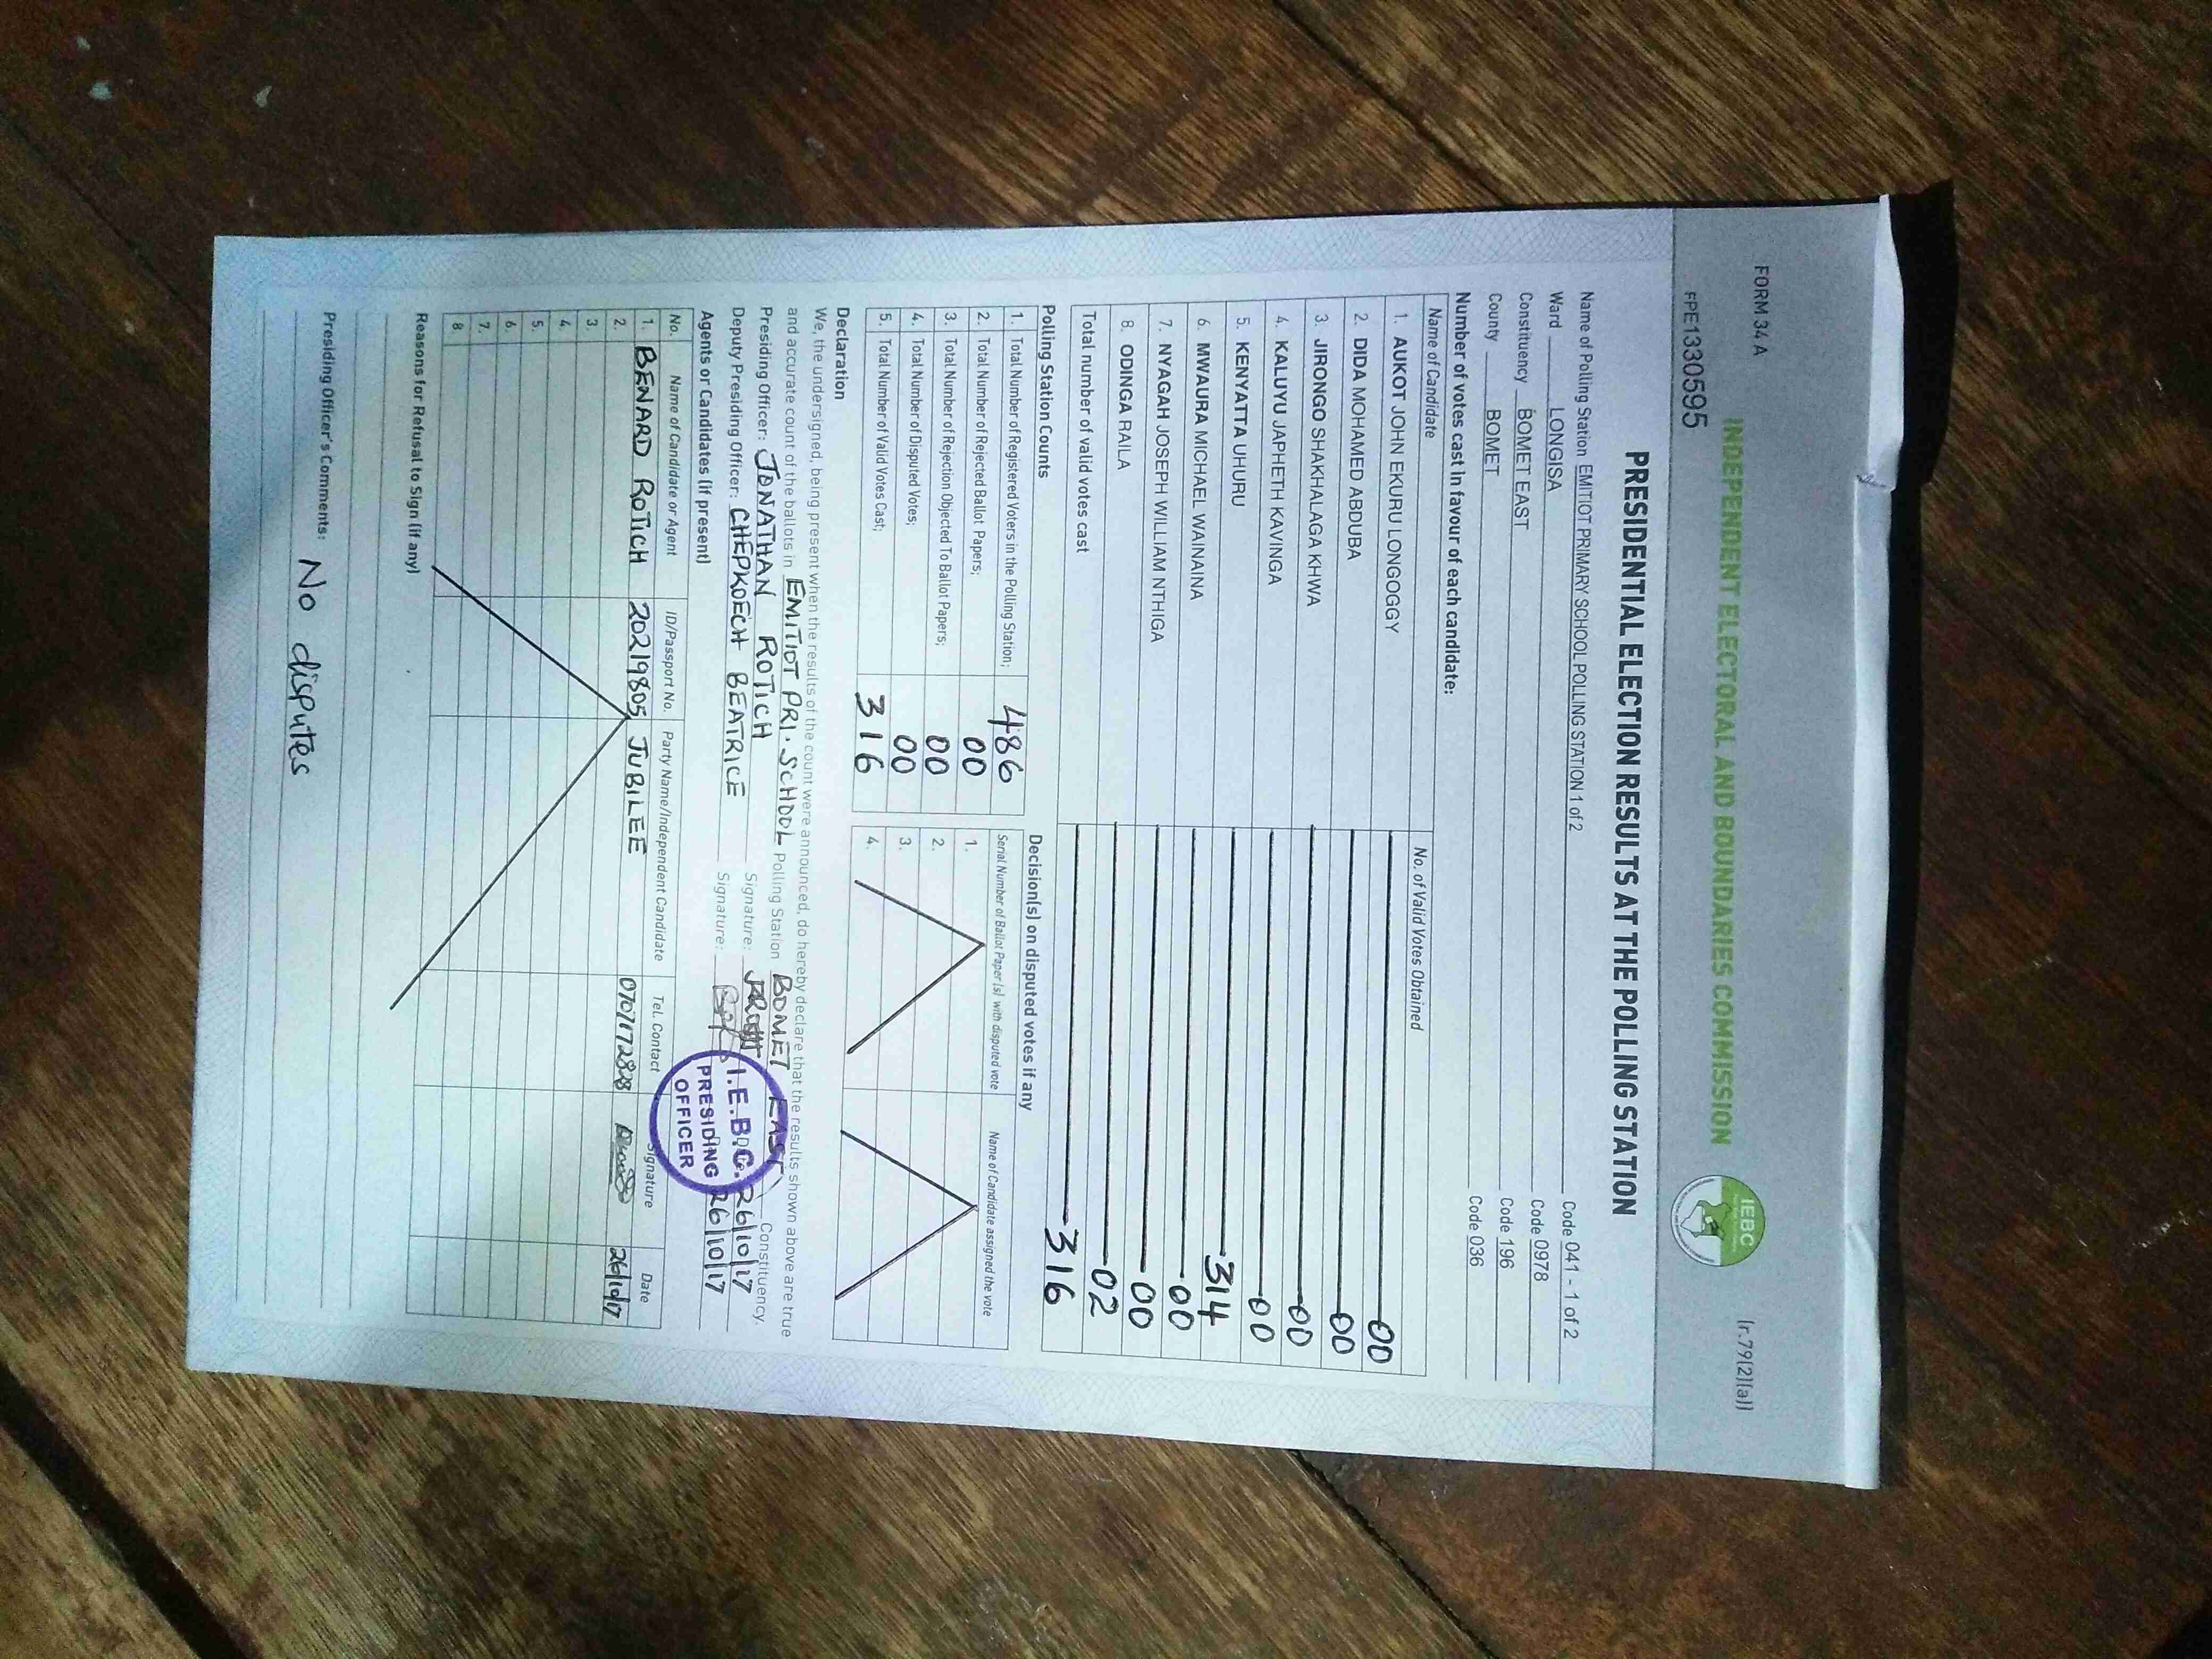 FORM 34 A
(r.79(2)(a))
INDEPENDENT ELECTORAL AND BOUNDARIES COMMISSION
IEBC
FPE1330595
PRESIDENTIAL ELECTION RESULTS AT THE POLLING STATION
Name of Polling Station EMITIOT PRIMARY SCHOOL POLLING STATION 1 of 2 Code 041 - 1 of 2
Ward LONGISA Code 0978
Constituency BOMET EAST Code 196
County BOMET Code 036
Number of votes cast in favour of each candidate:
Name of Candidate No. of Valid Votes Obtained
1. AUKOT JOHN EKURU LONGOGGY 00
2. DIDA MOHAMED ABDUBA 00
3. JIRONGO SHAKHALAGA KHWA 00
4. KALUYU JAPHETH KAVINGA 00
5. KENYATTA UHURU 314
6. MWAURA MICHAEL WAINAINA 00
7. NYAGAH JOSEPH WILLIAM NTHIGA 00
8. ODINGA RAILA 02
Total number of valid votes cast 316
Polling Station Counts
1. Total Number of Registered Voters in the Polling Station; 486
2. Total Number of Rejected Ballot Papers; 00
3. Total Number of Rejection Objected To Ballot Papers; 00
4. Total Number of Disputed Votes; 00
5. Total Number of Valid Votes Cast; 316
Decision(s) on disputed votes if any
Serial Number of Ballot Paper (s) with disputed vote Name of Candidate assigned the vote
1.
2.
3.
4.
Declaration
We, the undersigned, being present when the results of the count were announced, do hereby declare that the results shown above are true
and accurate count of the ballots in EMITIOT PRI. SCHOOL Polling Station BOMET EAST Constituency.
Presiding Officer: JONATHAN ROTICH Signature: 26/10/17
Deputy Presiding Officer: CHEPKOECH BEATRICE Signature: 26/10/17
I.E.B.C.
PRESIDING
OFFICER
Agents or Candidates (if present)
No. Name of Candidate or Agent ID/Passport No. Party Name/Independent Candidate Tel. Contact Signature Date
1. BENARD ROTICH 20219805 JUBILEE 0707172828 26/10/17
2.
3.
4.
5.
6.
7.
8
Reasons for Refusal to Sign (if any)
Presiding Officer's Comments: No disputes